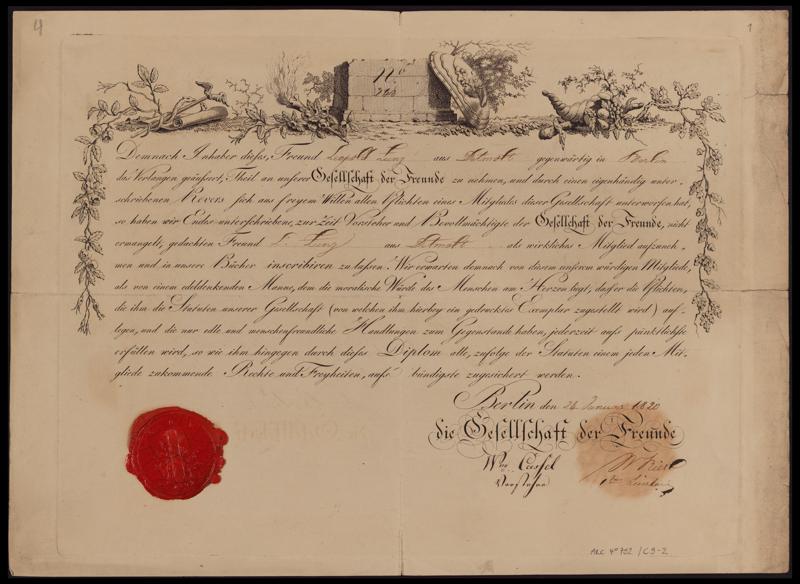 4
1
No
Demnach Inhaber dieses, Freund Leopold Zunz aus Detmold gegenwärtig in Berlin
das Verlangen geäußert, Theil an unserer Gesellschaft der Freunde zu nehmen, und durch einen eigenhändig unter-
schriebenen Revers sich aus freyem Willen allen Pflichten eines Mitgliedes dieser Gesellschaft unterworfen hat,
so haben wir Endes unterschriebene, zur Zeit Vorsteher und Bevollmächtigte der Gesellschaft der Freunde, nicht
ermangelt, gedachten Freund L. Zunz aus Detmold als wirkliches Mitglied aufzuneh-
men und in unsere Bücher inscribiren zu lassen. Wir erwarten demnach von diesem unserem würdigen Mitgliede,
als von einem edeldenkenden Manne, dem die moralische Würde des Menschen am Herzen liegt, dass er die Pflichten,
die ihm die Statuten unserer Gesellschaft (von welchen ihm hierbey ein gedrucktes Exemplar zugestellt wird) auf-
legen, und die nur edle und menschenfreundliche Handlungen zum Gegenstande haben, jederzeit aufs pünktlichste
erfüllen wird, so wie ihm hingegen durch dieses Diplom alle, zufolge der Statuten einem jeden Mit-
gliede zukommende Rechte und Freyheiten, aufs bündigste zugesichert werden.
Berlin den 26 Januar 1820
die Gesellschaft der Freunde
Vorsteher
ARC 4° 792 / C9-2